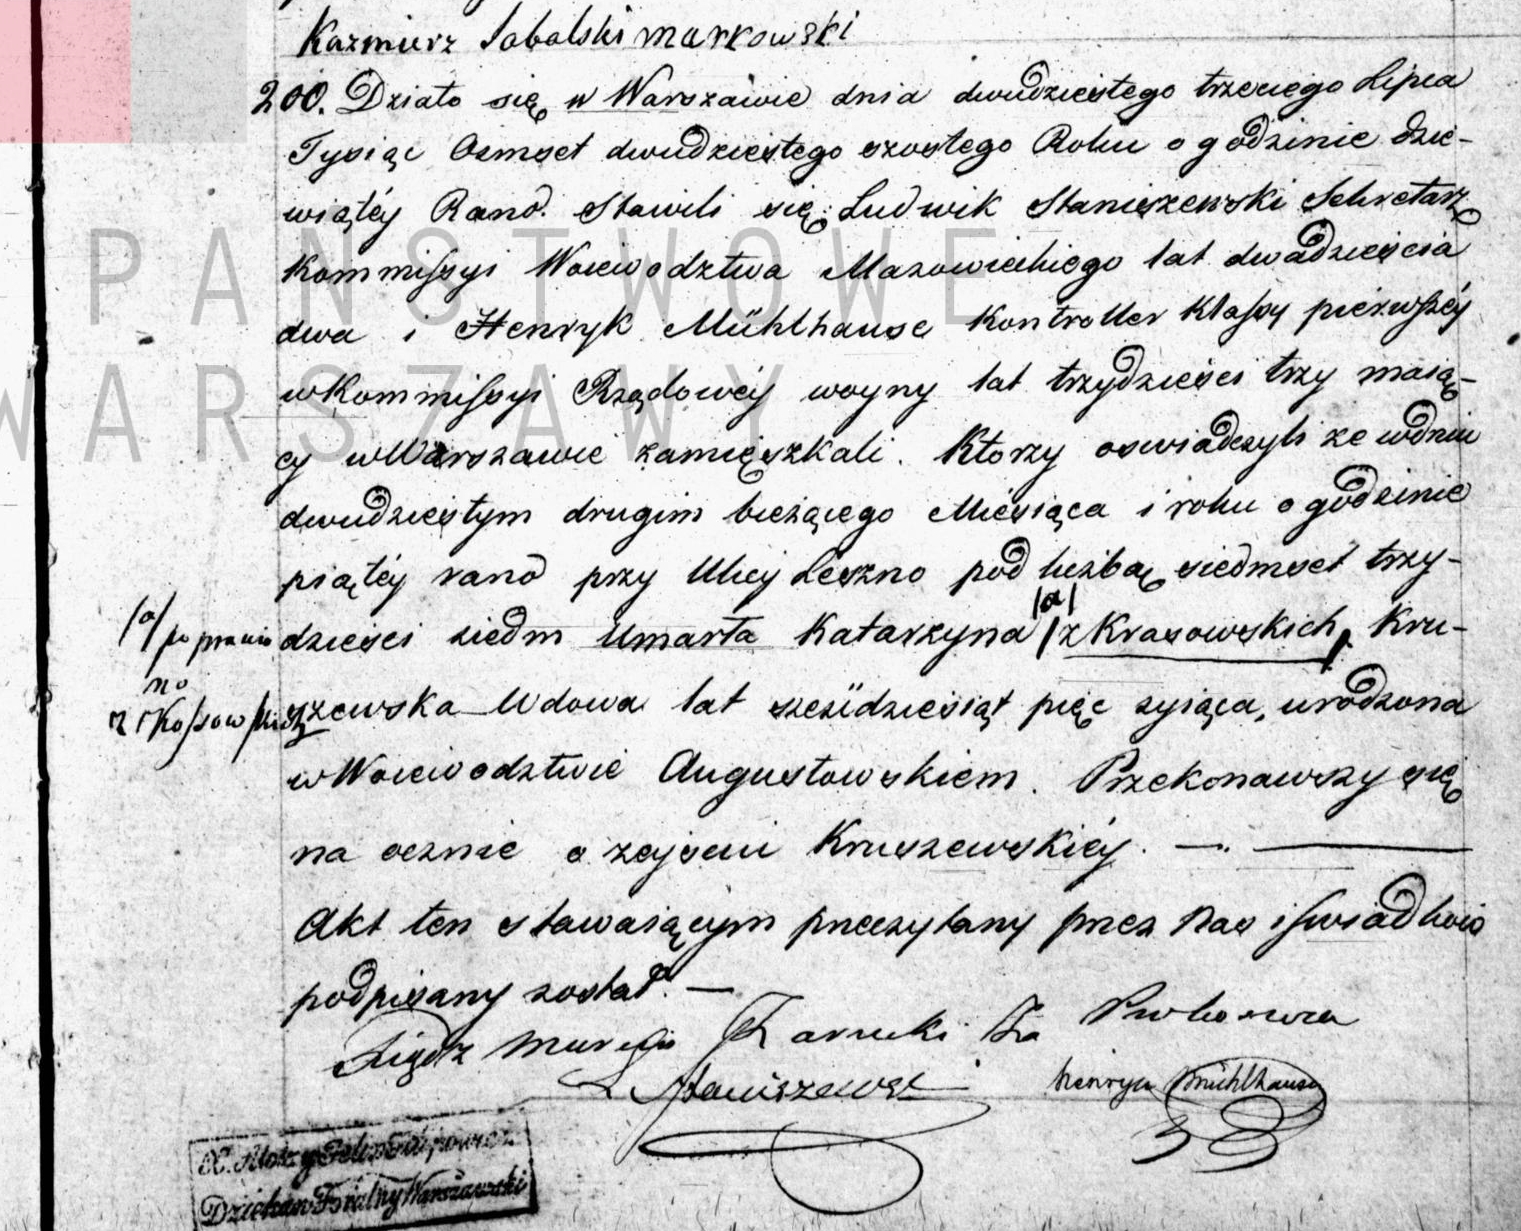 Kazmierz Sobolski Markowski
200. Działo się w Warszawie dnia dwudziestego trzeciego Lipca
Tysiąc Osmset dwudziestego szostego Roku o godzinie dzie-
wiątéy Rano. Stawili się Ludwik Staniszewski Sekretarz
Kommissyi Woiewodztwa Mazowieckiego lat dwadzieścia
dwa i Henryk Mühlhause Kontroller Klassy pierwszéy
w Kommissyi Rządowéy woyny lat trzydzieści trzy maią-
cy w Warszawie zamięszkali. Ktorzy oswiadczyli ze w dniu
dwudziestym drugim bieżącego Miesiąca i roku o godzinie
piątéy rano przy Ulicy Leszno pod liczbą siedmset trzy-
/a/
dzieści siedm Umarła Katarzyna z Krasowskich Kru-
/a/ poprawio
no
z Kossowskich
szewska Wdowa lat sześćdziesiąt pięc zyiąca, urodzona
w Woiewodztwie Augustowskiem. Przekonawszy się
na ocznie o zejsciu Kruszewskiéy. —
Akt ten stawaiącym przeczytany przez Nas i swiadkow
podpisany został. —
Xiądz Za Proboszcza
L Staniszewski
Henryk Mühlhause
Dziekan Foralny Warszawski
PAŃSTWOWE
WARSZAWY